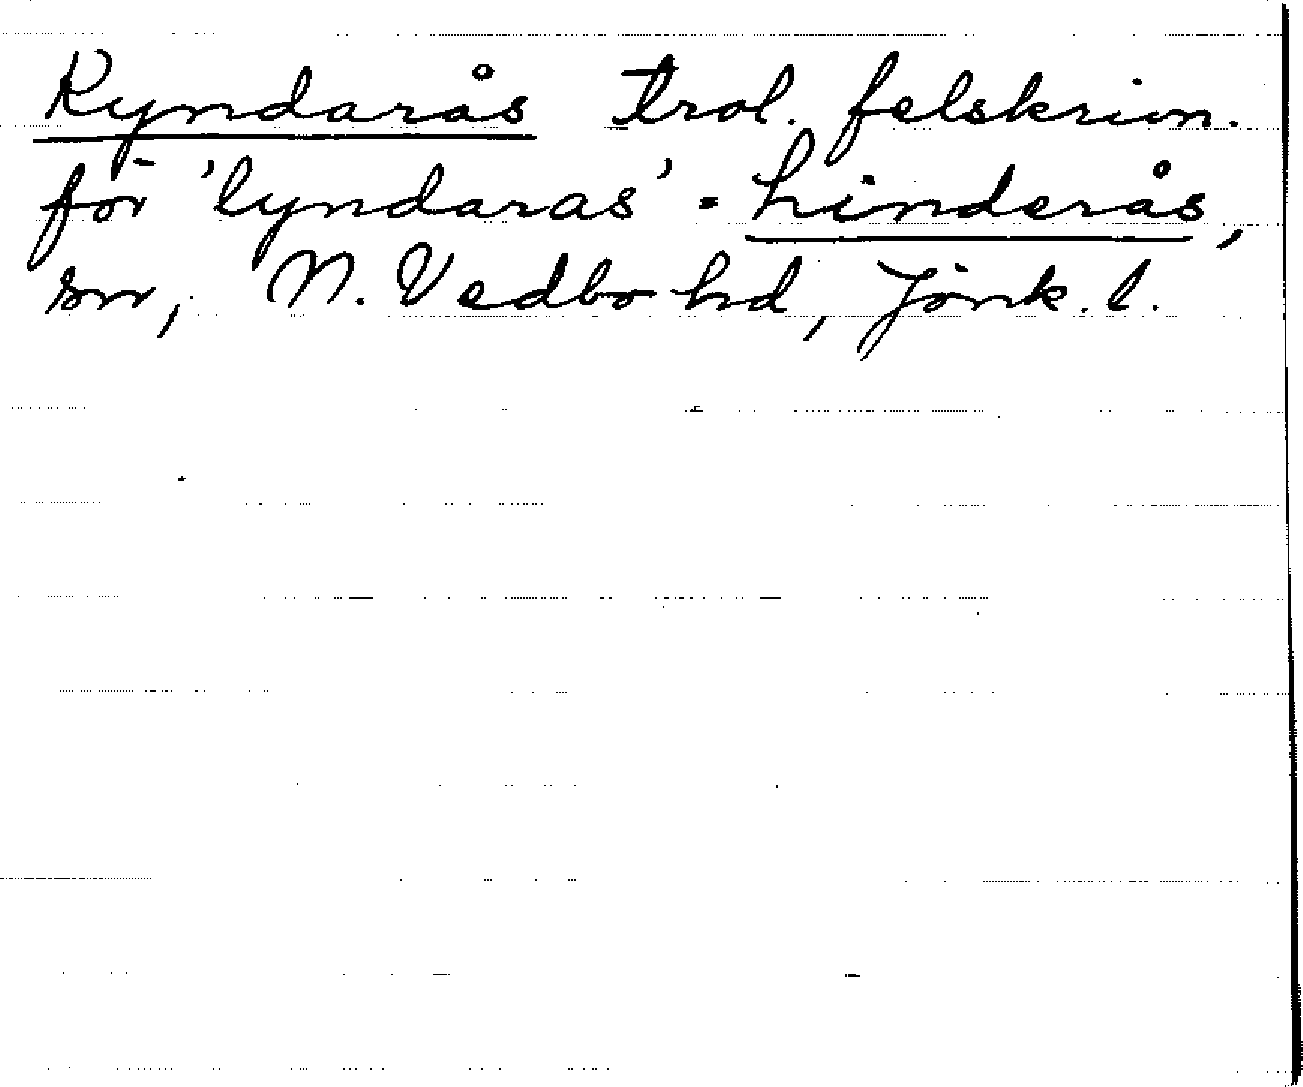 Kyndarås trol. felskrivn.
för 'lyndaras' = Linderås,
sn, N. Vedbo hd, Jönk. l.